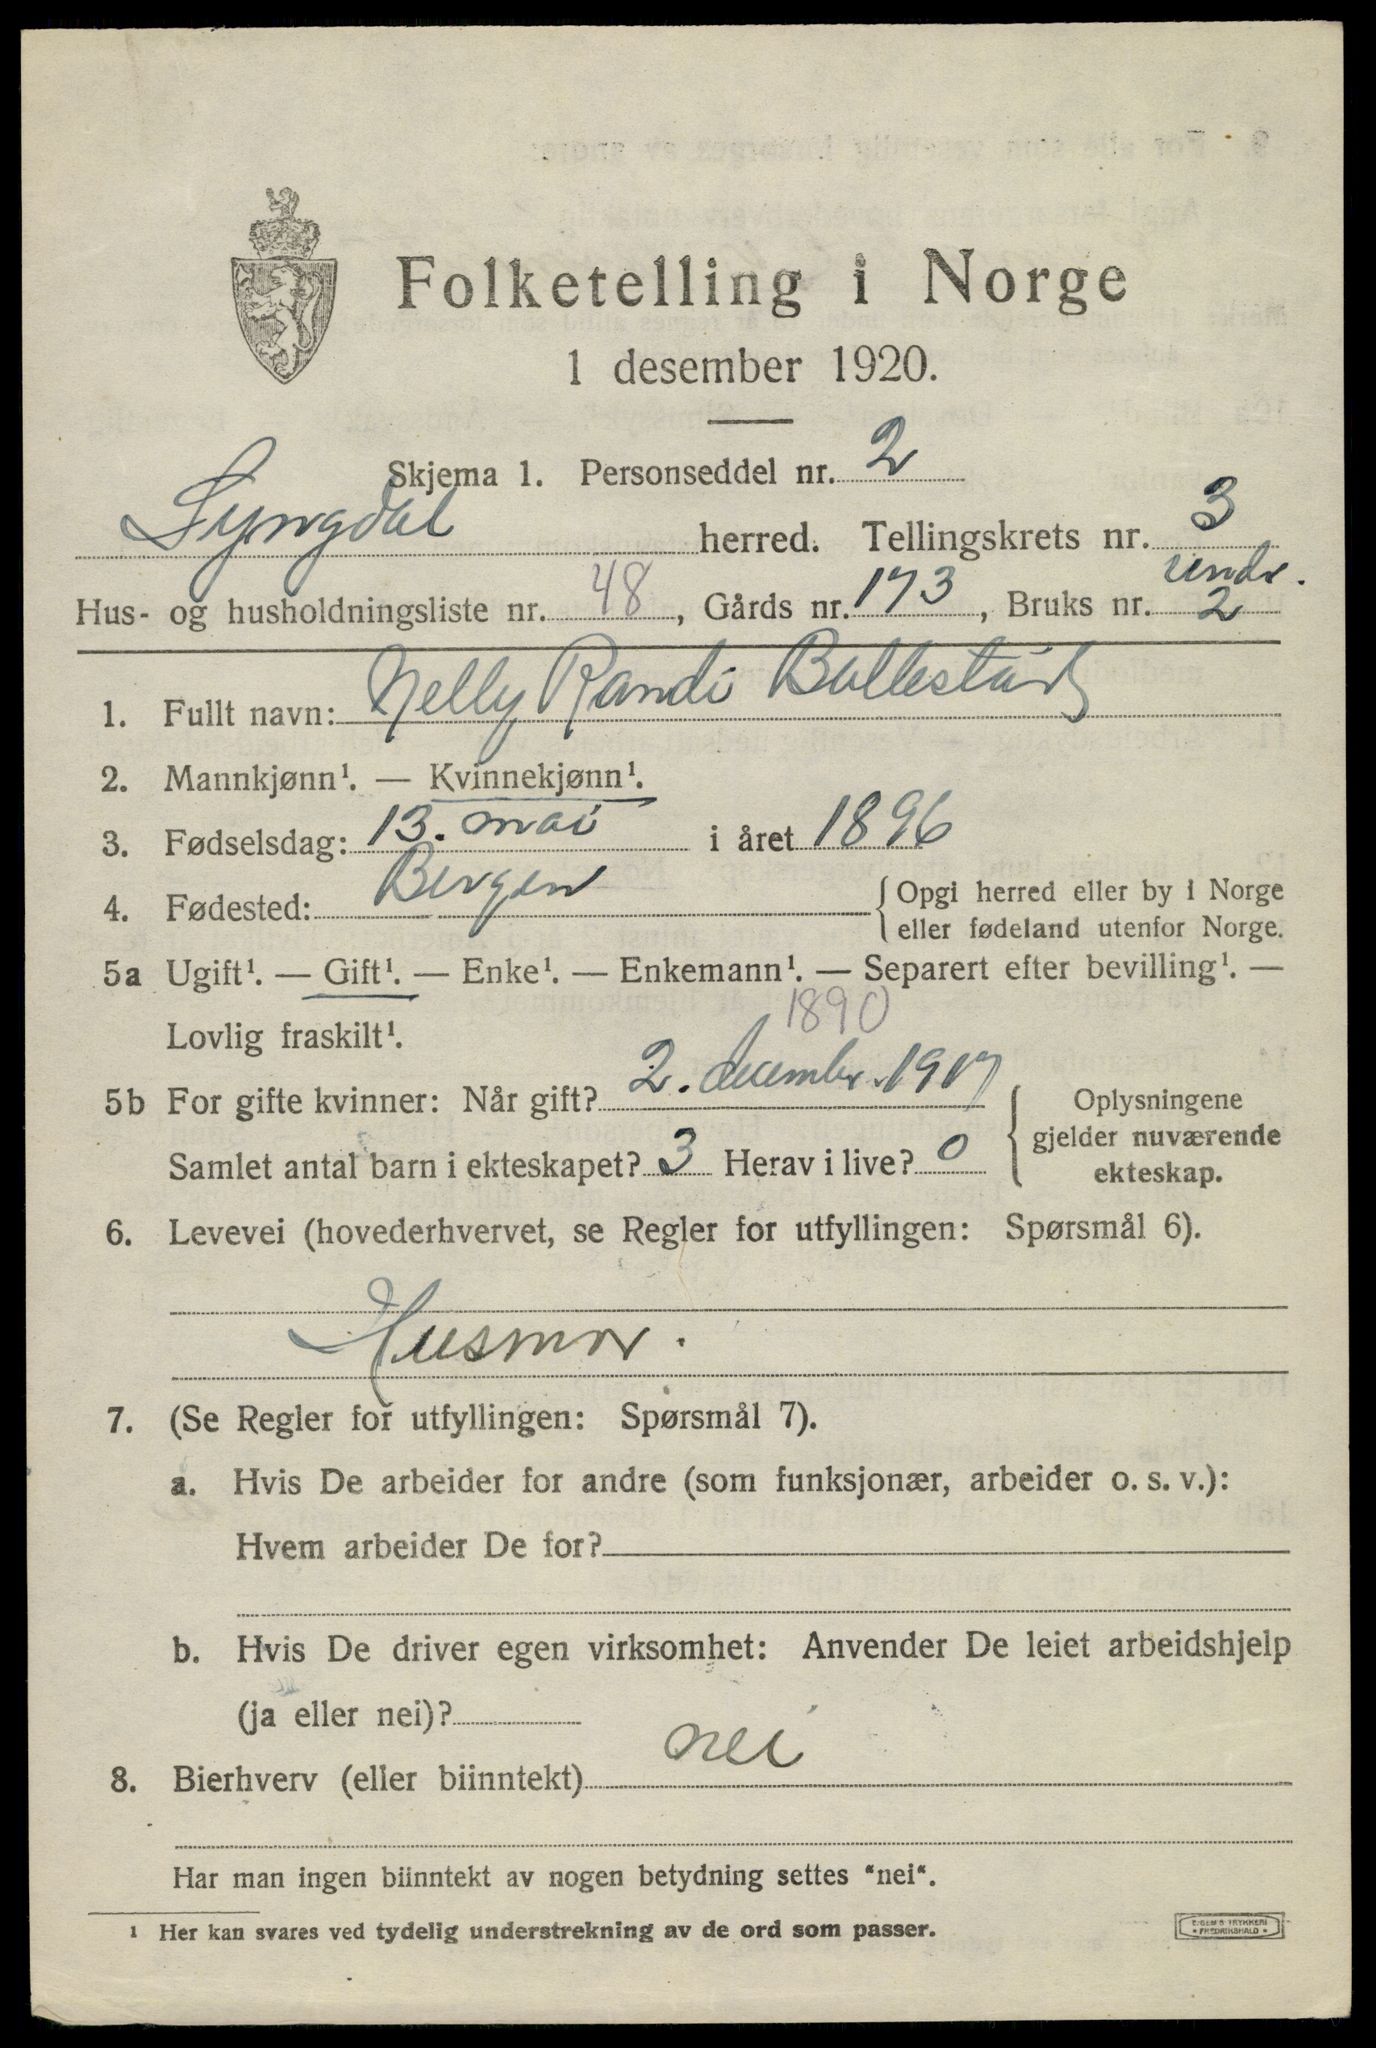 Folketelling i Norge
1 desember 1920.
Skjema 1. Personseddel nr. 2
Lyngdal herred. Tellingskrets nr. 3
undr.
Hus- og husholdningsliste nr. 48, Gårds nr. 173, Bruks nr. 2
1. Fullt navn: Nelly Randi Bullestad
2. Mannkjønn¹. — Kvinnekjønn¹.
3. Fødselsdag: 13. mai i året 1896
4. Fødested: Bergen { Opgi herred eller by i Norge
eller fødeland utenfor Norge.
5a Ugift¹. — Gift¹. — Enke¹. — Enkemann¹. — Separert efter bevilling¹. —
Lovlig fraskilt¹. 1890
5b For gifte kvinner: Når gift? 2. december 1917
Samlet antal barn i ekteskapet? 3 Herav i live? 0
{ Oplysningene
gjelder nuværende
ekteskap.
6. Levevei (hovederhvervet, se Regler for utfyllingen: Spørsmål 6).
Husmor.
7. (Se Regler for utfyllingen: Spørsmål 7).
a. Hvis De arbeider for andre (som funksjonær, arbeider o. s. v.):
Hvem arbeider De for?
b. Hvis De driver egen virksomhet: Anvender De leiet arbeidshjelp
(ja eller nei)?
8. Bierhverv (eller biinntekt) nei
Har man ingen biinntekt av nogen betydning settes "nei".
¹ Her kan svares ved tydelig understrekning av de ord som passer.
E. SEM'S TRYKKERI
• FREDRIKSHALD •